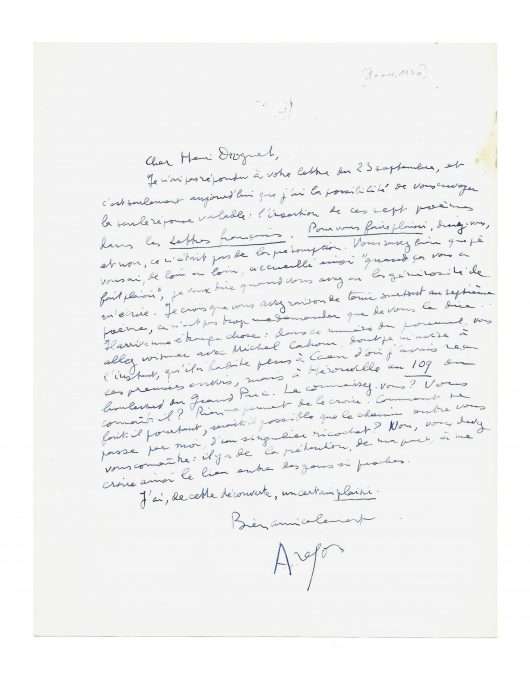 Cher Henri Droguet,
Je n'ai pas répondu à votre lettre du 23 septembre, et
c'est seulement aujourd'hui que j'ai la possibilité de vous envoyer
la seule réponse valable : l'insertion de ces sept poèmes
dans les Lettres françaises. Pour vous faire plaisir, disiez-vous,
et non, ce n'était pas de la présomption. Vous savez bien que je
vous ai, de loin en loin, accueilli ainsi "quand ça vous a
fait plaisir", je veux dire quand vous avez eu la générosité de
m'écrire. Je crois que vous avez raison de tenir surtout au septième
poème, ce n'est pas trop me demander que de vous le dire.
Il arrive une étrange chose : dans ce numéro du journal, vous
allez voisiner avec Michel Cahour dont je m'avise à
l'instant, qu'il n'habite plus à Caen d'où j'avais reçu
ses premiers envois, mais à Hérouville au 109 du
boulevard du Grand Parc. Le connaissez-vous ? Vous
connaît-il ? Rien ne permet de le croire. Comment ne
fait-il pourtant, serait-il possible que le chemin entre vous
passe par moi, d'un singulier ricochet ? Non, vous devez
vous connaître : il y a de la prétention, de ma part, à me
croire ainsi le lien entre des gens si proches.
J'ai, de cette découverte, un certain plaisir.
Bien amicalement
Aragon